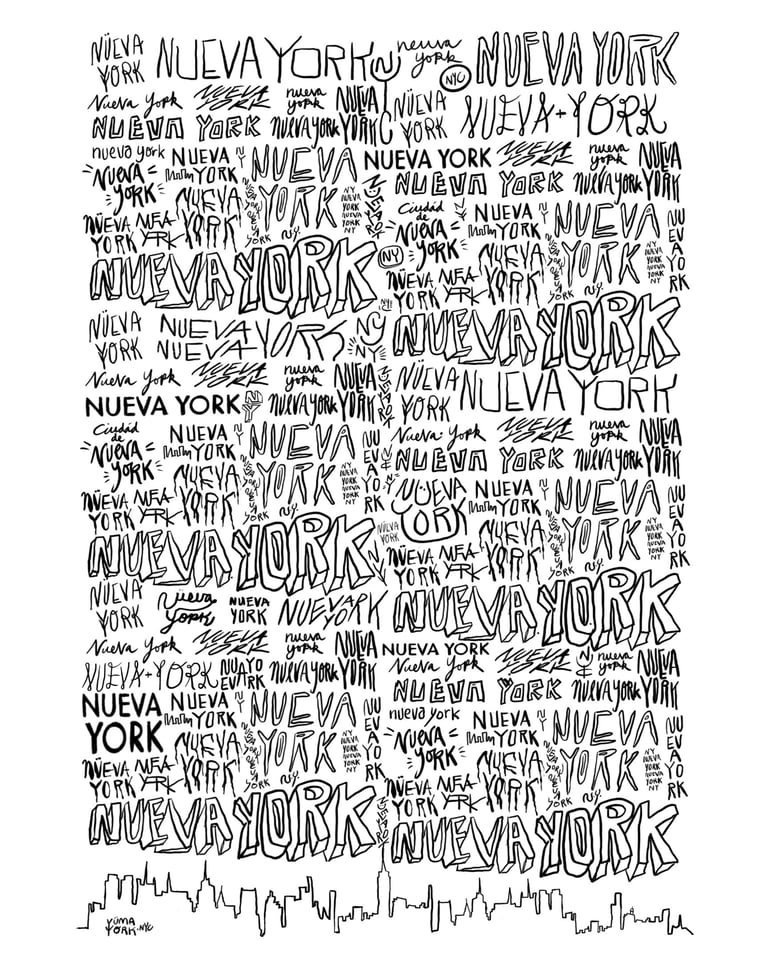 NÜEVA YORK NUEVA YORK NYC neuva york NYC NUEVA YORK
Nueva York NUEVA YORK nueva york NUEVA YORK NÜEVA YORK NUEVA+YORK
NUEVA YORK nueva york
nueva york NUEVA YORK NY NUEVA YORK NUEVA YORK NUEVA YORK nueva york NUEVA YORK
NUEVA YORK NUEVA YORK NUEVA YORK nueva york
NY NUEVA YORK NUEVA YORK NY
Ciudad de NUEVA YORK NUEVA YORK NY NUEVA YORK NUEVA YORK
NUEVA YORK NUEVA YORK N.Y.
NUEVA YORK NY NUEVA YORK
NUEVA YORK NUEVA YORK N.Y.
NÜEVA YORK NUEVA YORK NY NUEVA YORK
NUEVA YORK NY
Nueva York NUEVA YORK nueva york NUEVA YORK NÜEVA YORK NUEVA YORK
NUEVA YORK NY nueva york NUEVA YORK
Ciudad de NUEVA YORK NUEVA YORK NUEVA YORK NUEVA YORK Nueva York NUEVA YORK nueva york NUEVA YORK
NUEVA YORK nueva york
NUEVA YORK NY NUEVA YORK NUEVA YORK NUEVA YORK NY NUEVA YORK NUEVA YORK
NUEVA YORK NUEVA YORK N.Y.
NUEVA YORK NUEVA YORK
NUEVA YORK N.Y.
NUEVA YORK
NÜEVA YORK nüeva york NUEVA YORK NUEVA YORK
Nueva York NUEVA YORK nueva york NUEVA YORK NUEVA YORK
Nueva York NUEVA YORK nueva york NUEVA YORK
NUEVA+YORK NUEVA YORK nueva york NUEVA YORK nueva york
NUEVA YORK NUEVA YORK NUEVA YORK NUEVA YORK nueva york NUEVA YORK NUEVA YORK NUEVA YORK
NUEVA YORK NUEVA YORK
NUEVA YORK NY NUEVA YORK
NUEVA YORK N.Y. NUEVA YORK N.Y.
NUEVA YORK NUEVA YORK
YÜMA YORK·NYC